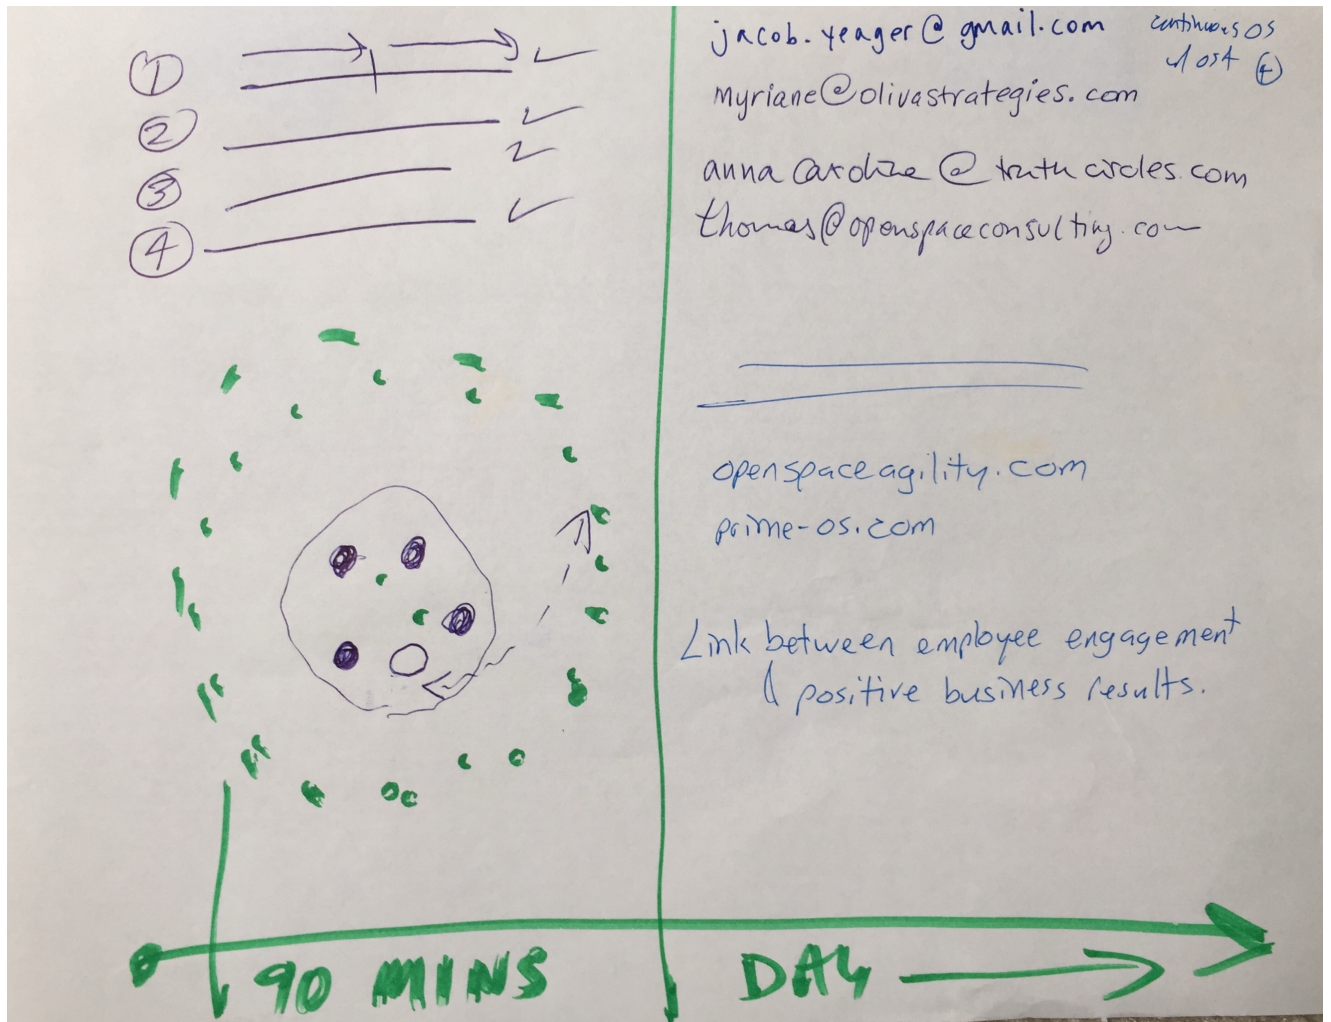 1
2
3
4
jacob.yeager@gmail.com
continuous OS
w/ OST
myriane@olivastrategies.com
anna caroline@truthcircles.com
thomas@openspaceconsulting.com
openspaceagility.com
prime-os.com
Link between employee engagement
& positive business results.
90 MINS
DAY